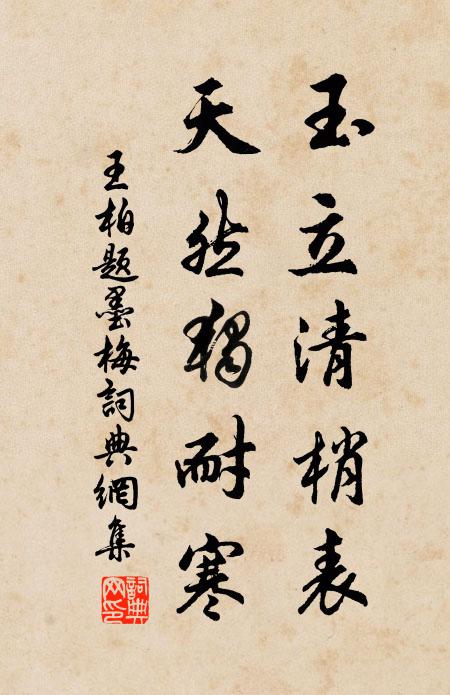 玉立清梢表
天然獨耐寒
王柏題墨梅詞典網集
詞典網印